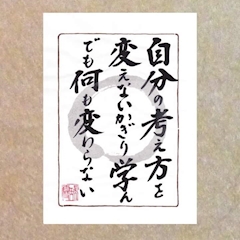 自分の考え方を
変えないかぎり学ん
でも何も変わらない